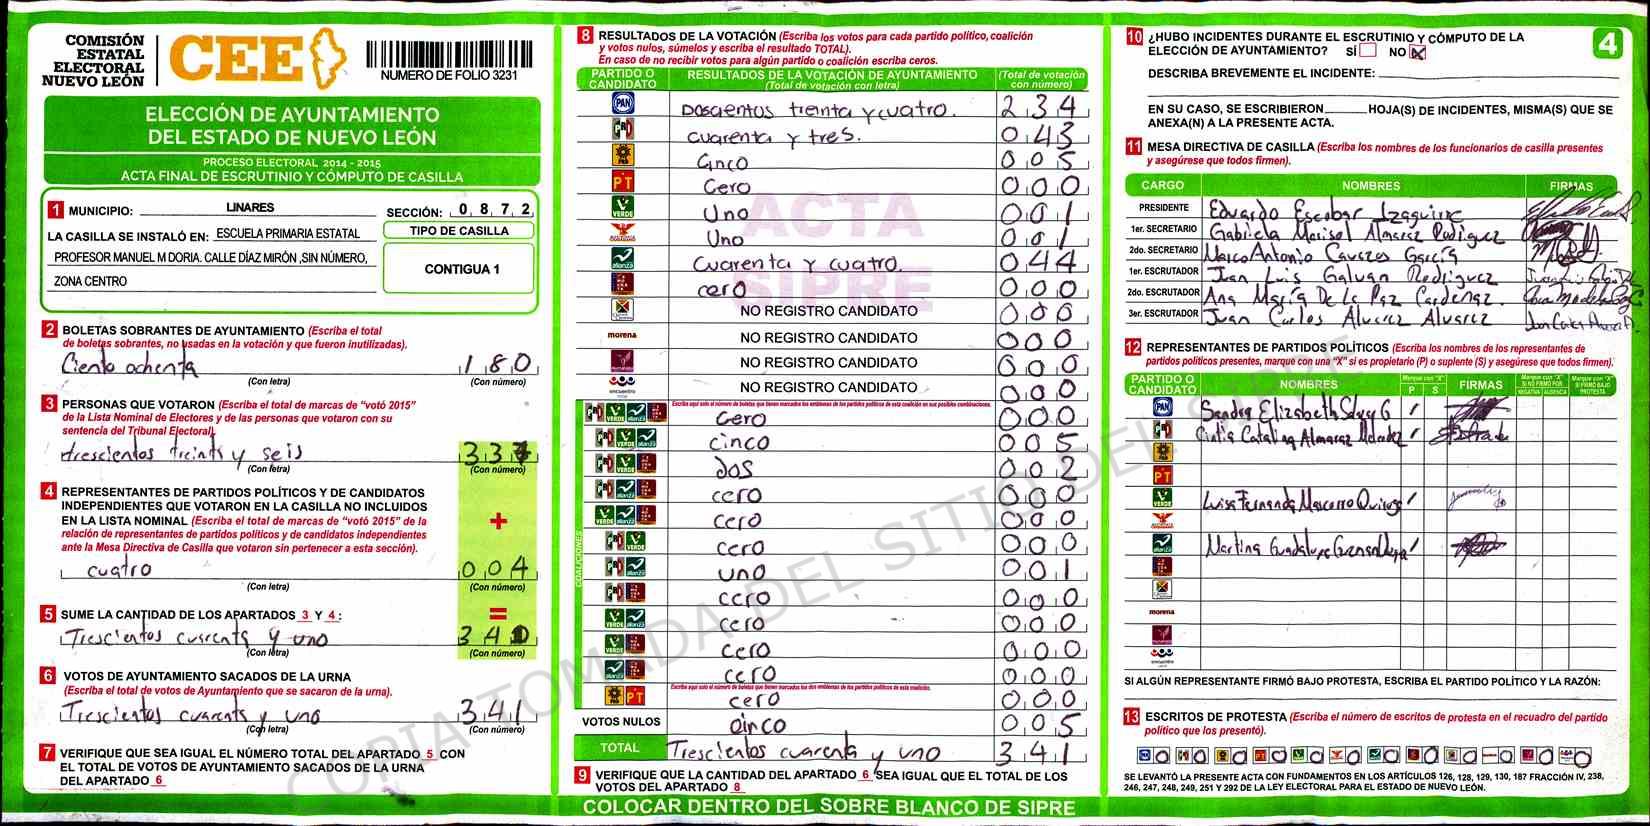 COMISIÓN
ESTATAL
ELECTORAL
NUEVO LEÓN
CEE
NUMERO DE FOLIO 3231
ELECCIÓN DE AYUNTAMIENTO
DEL ESTADO DE NUEVO LEÓN
PROCESO ELECTORAL 2014 - 2015
ACTA FINAL DE ESCRUTINIO Y CÓMPUTO DE CASILLA
1 MUNICIPIO: LINARES SECCIÓN: 0 8 7 2
LA CASILLA SE INSTALÓ EN: ESCUELA PRIMARIA ESTATAL
PROFESOR MANUEL M DORIA. CALLE DÍAZ MIRÓN ,SIN NÚMERO,
ZONA CENTRO
TIPO DE CASILLA
CONTIGUA 1
2 BOLETAS SOBRANTES DE AYUNTAMIENTO (Escriba el total
de boletas sobrantes, no usadas en la votación y que fueron inutilizadas).
Ciento ochenta 1 8 0
(Con letra) (Con número)
3 PERSONAS QUE VOTARON (Escriba el total de marcas de “votó 2015”
de la Lista Nominal de Electores y de las personas que votaron con su
sentencia del Tribunal Electoral).
trescientos treinta y seis 3 3
(Con letra) (Con número)
4 REPRESENTANTES DE PARTIDOS POLÍTICOS Y DE CANDIDATOS
INDEPENDIENTES QUE VOTARON EN LA CASILLA NO INCLUIDOS
EN LA LISTA NOMINAL (Escriba el total de marcas de “votó 2015” de la
relación de representantes de partidos políticos y de candidatos independientes
ante la Mesa Directiva de Casilla que votaron sin pertenecer a esta sección).
+
cuatro 0 0 4
(Con letra) (Con número)
5 SUME LA CANTIDAD DE LOS APARTADOS 3 Y 4 : =
Trescientos cuarenta y uno 3 4
(Con letra) (Con número)
6 VOTOS DE AYUNTAMIENTO SACADOS DE LA URNA
(Escriba el total de votos de Ayuntamiento que se sacaron de la urna).
Trescientos cuarenta y uno 3 4 1
(Con letra) (Con número)
7 VERIFIQUE QUE SEA IGUAL EL NÚMERO TOTAL DEL APARTADO 5 CON
EL TOTAL DE VOTOS DE AYUNTAMIENTO SACADOS DE LA URNA
DEL APARTADO 6
8 RESULTADOS DE LA VOTACIÓN (Escriba los votos para cada partido político, coalición
y votos nulos, súmelos y escriba el resultado TOTAL).
En caso de no recibir votos para algún partido o coalición escriba ceros.
PARTIDO O CANDIDATO RESULTADOS DE LA VOTACIÓN DE AYUNTAMIENTO (Total de votación con letra) (Total de votación con número)
PAN Doscientos treinta y cuatro. 2 3 4
PRI cuarenta y tres. 0 4 3
PRD Cinco 0 0 5
PT Cero 0 0 0
VERDE Uno 0 0 1
Uno 0 0 1
alianza Cuarenta y cuatro. 0 4 4
cero 0 0 0
NO REGISTRO CANDIDATO 0 0 0
morena NO REGISTRO CANDIDATO 0 0 0
NO REGISTRO CANDIDATO 0 0 0
encuentro NO REGISTRO CANDIDATO 0 0 0
COALICIONES
Escriba aquí solo el número de boletas que tienen marcados los emblemas de los partidos políticos de esta coalición en sus posibles combinaciones.
Cero 0 0 0
cinco 0 0 5
dos 0 0 2
cero 0 0 0
cero 0 0 0
cero 0 0 0
uno 0 0 1
cero 0 0 0
cero 0 0 0
cero 0 0 0
cero 0 0 0
Escriba aquí solo el número de boletas que tienen marcados los dos emblemas de los partidos políticos de esta coalición.
cero 0 0 0
VOTOS NULOS cinco 0 0 5
TOTAL Trescientos cuarenta y uno 3 4 1
9 VERIFIQUE QUE LA CANTIDAD DEL APARTADO 6 SEA IGUAL QUE EL TOTAL DE LOS
VOTOS DEL APARTADO 8
COLOCAR DENTRO DEL SOBRE BLANCO DE SIPRE
ACTA
SIPRE
COPIA TOMADA DEL SITIO DEL SIPRE
10 ¿HUBO INCIDENTES DURANTE EL ESCRUTINIO Y CÓMPUTO DE LA
ELECCIÓN DE AYUNTAMIENTO? SÍ NO X
4
DESCRIBA BREVEMENTE EL INCIDENTE:
EN SU CASO, SE ESCRIBIERON HOJA(S) DE INCIDENTES, MISMA(S) QUE SE
ANEXA(N) A LA PRESENTE ACTA.
11 MESA DIRECTIVA DE CASILLA (Escriba los nombres de los funcionarios de casilla presentes
y asegúrese que todos firmen).
CARGO NOMBRES FIRMAS
PRESIDENTE Eduardo Escobar Izaguirre
1er. SECRETARIO Gabriela Marisol Almaraz Rodriguez
2do. SECRETARIO Marco Antonio Cavazos García
1er. ESCRUTADOR Juan Luis Galvan Rodriguez
2do. ESCRUTADOR Ana María De la Paz Cardenaz.
3er. ESCRUTADOR Juan Carlos Alvarez Alvarez
12 REPRESENTANTES DE PARTIDOS POLÍTICOS (Escriba los nombres de los representantes de
partidos políticos presentes, marque con una “X” si es propietario (P) o suplente (S) y asegúrese que todos firmen).
PARTIDO O CANDIDATO NOMBRES Marque con “X” P S FIRMAS Marque con “X” SI NO FIRMÓ POR NEGATIVA AUSENCIA Marque con “X” SI FIRMÓ BAJO PROTESTA
PAN Sandra Elizabeth G
Cintia Catalina Almaraz
PT
VERDE Luisa Fernanda Quiroga
alianza Martina Guadalupe Guzman
morena
encuentro
SI ALGÚN REPRESENTANTE FIRMÓ BAJO PROTESTA, ESCRIBA EL PARTIDO POLÍTICO Y LA RAZÓN:
13 ESCRITOS DE PROTESTA (Escriba el número de escritos de protesta en el recuadro del partido
político que los presentó).
SE LEVANTÓ LA PRESENTE ACTA CON FUNDAMENTOS EN LOS ARTÍCULOS 126, 128, 129, 130, 187 FRACCIÓN IV, 238,
246, 247, 248, 249, 251 Y 292 DE LA LEY ELECTORAL PARA EL ESTADO DE NUEVO LEÓN.